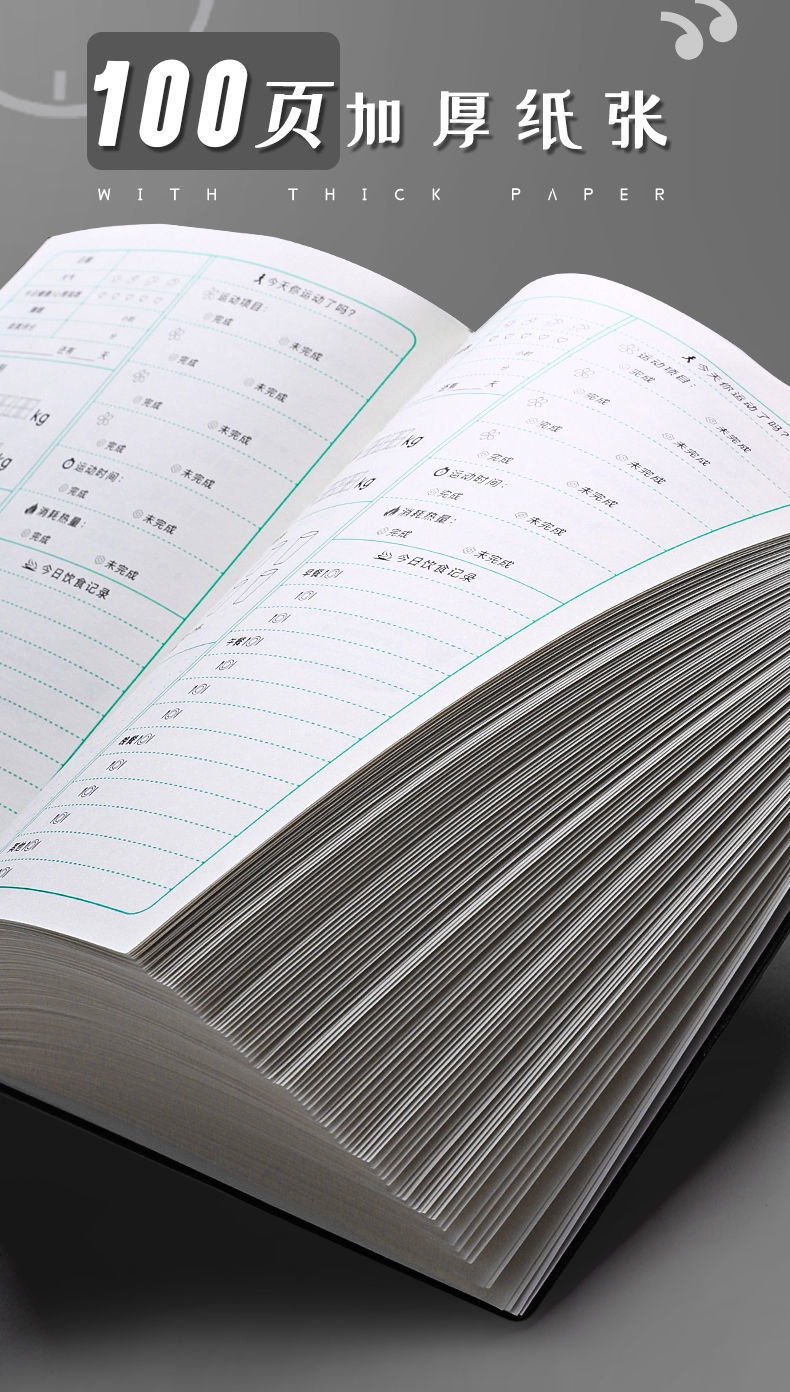 100页加厚纸张
WITH THICK PAPER
日期
天气
小时
分
还有 天
kg
kg
今天你运动了吗？
运动项目：
完成 未完成
完成 未完成
完成 未完成
完成 未完成
运动时间：
完成 未完成
消耗热量：
完成 未完成
今日饮食记录
小时
分
还有 天
kg
kg
今天你运动了吗？
运动项目：
完成 未完成
完成 未完成
完成 未完成
完成 未完成
运动时间：
完成 未完成
消耗热量：
完成 未完成
今日饮食记录
早餐
午餐
晚餐
其他